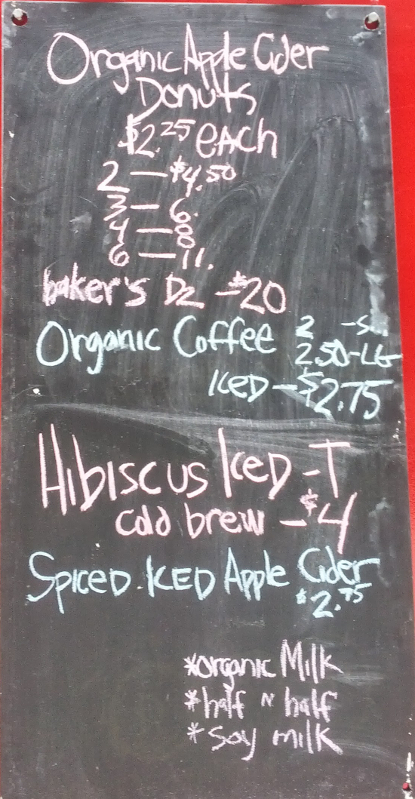 Organic Apple Cider
Donuts
$2.25 each
2 — $4.50
3 — 6.
4 — 8
6 — 11.
baker's Dz — $20
Organic Coffee 2 - S
2.50 - LG
Iced - $2.75
Hibiscus Iced - T
cold brew - $4
Spiced Iced Apple Cider
$2.75
*organic Milk
*half N half
*soy milk